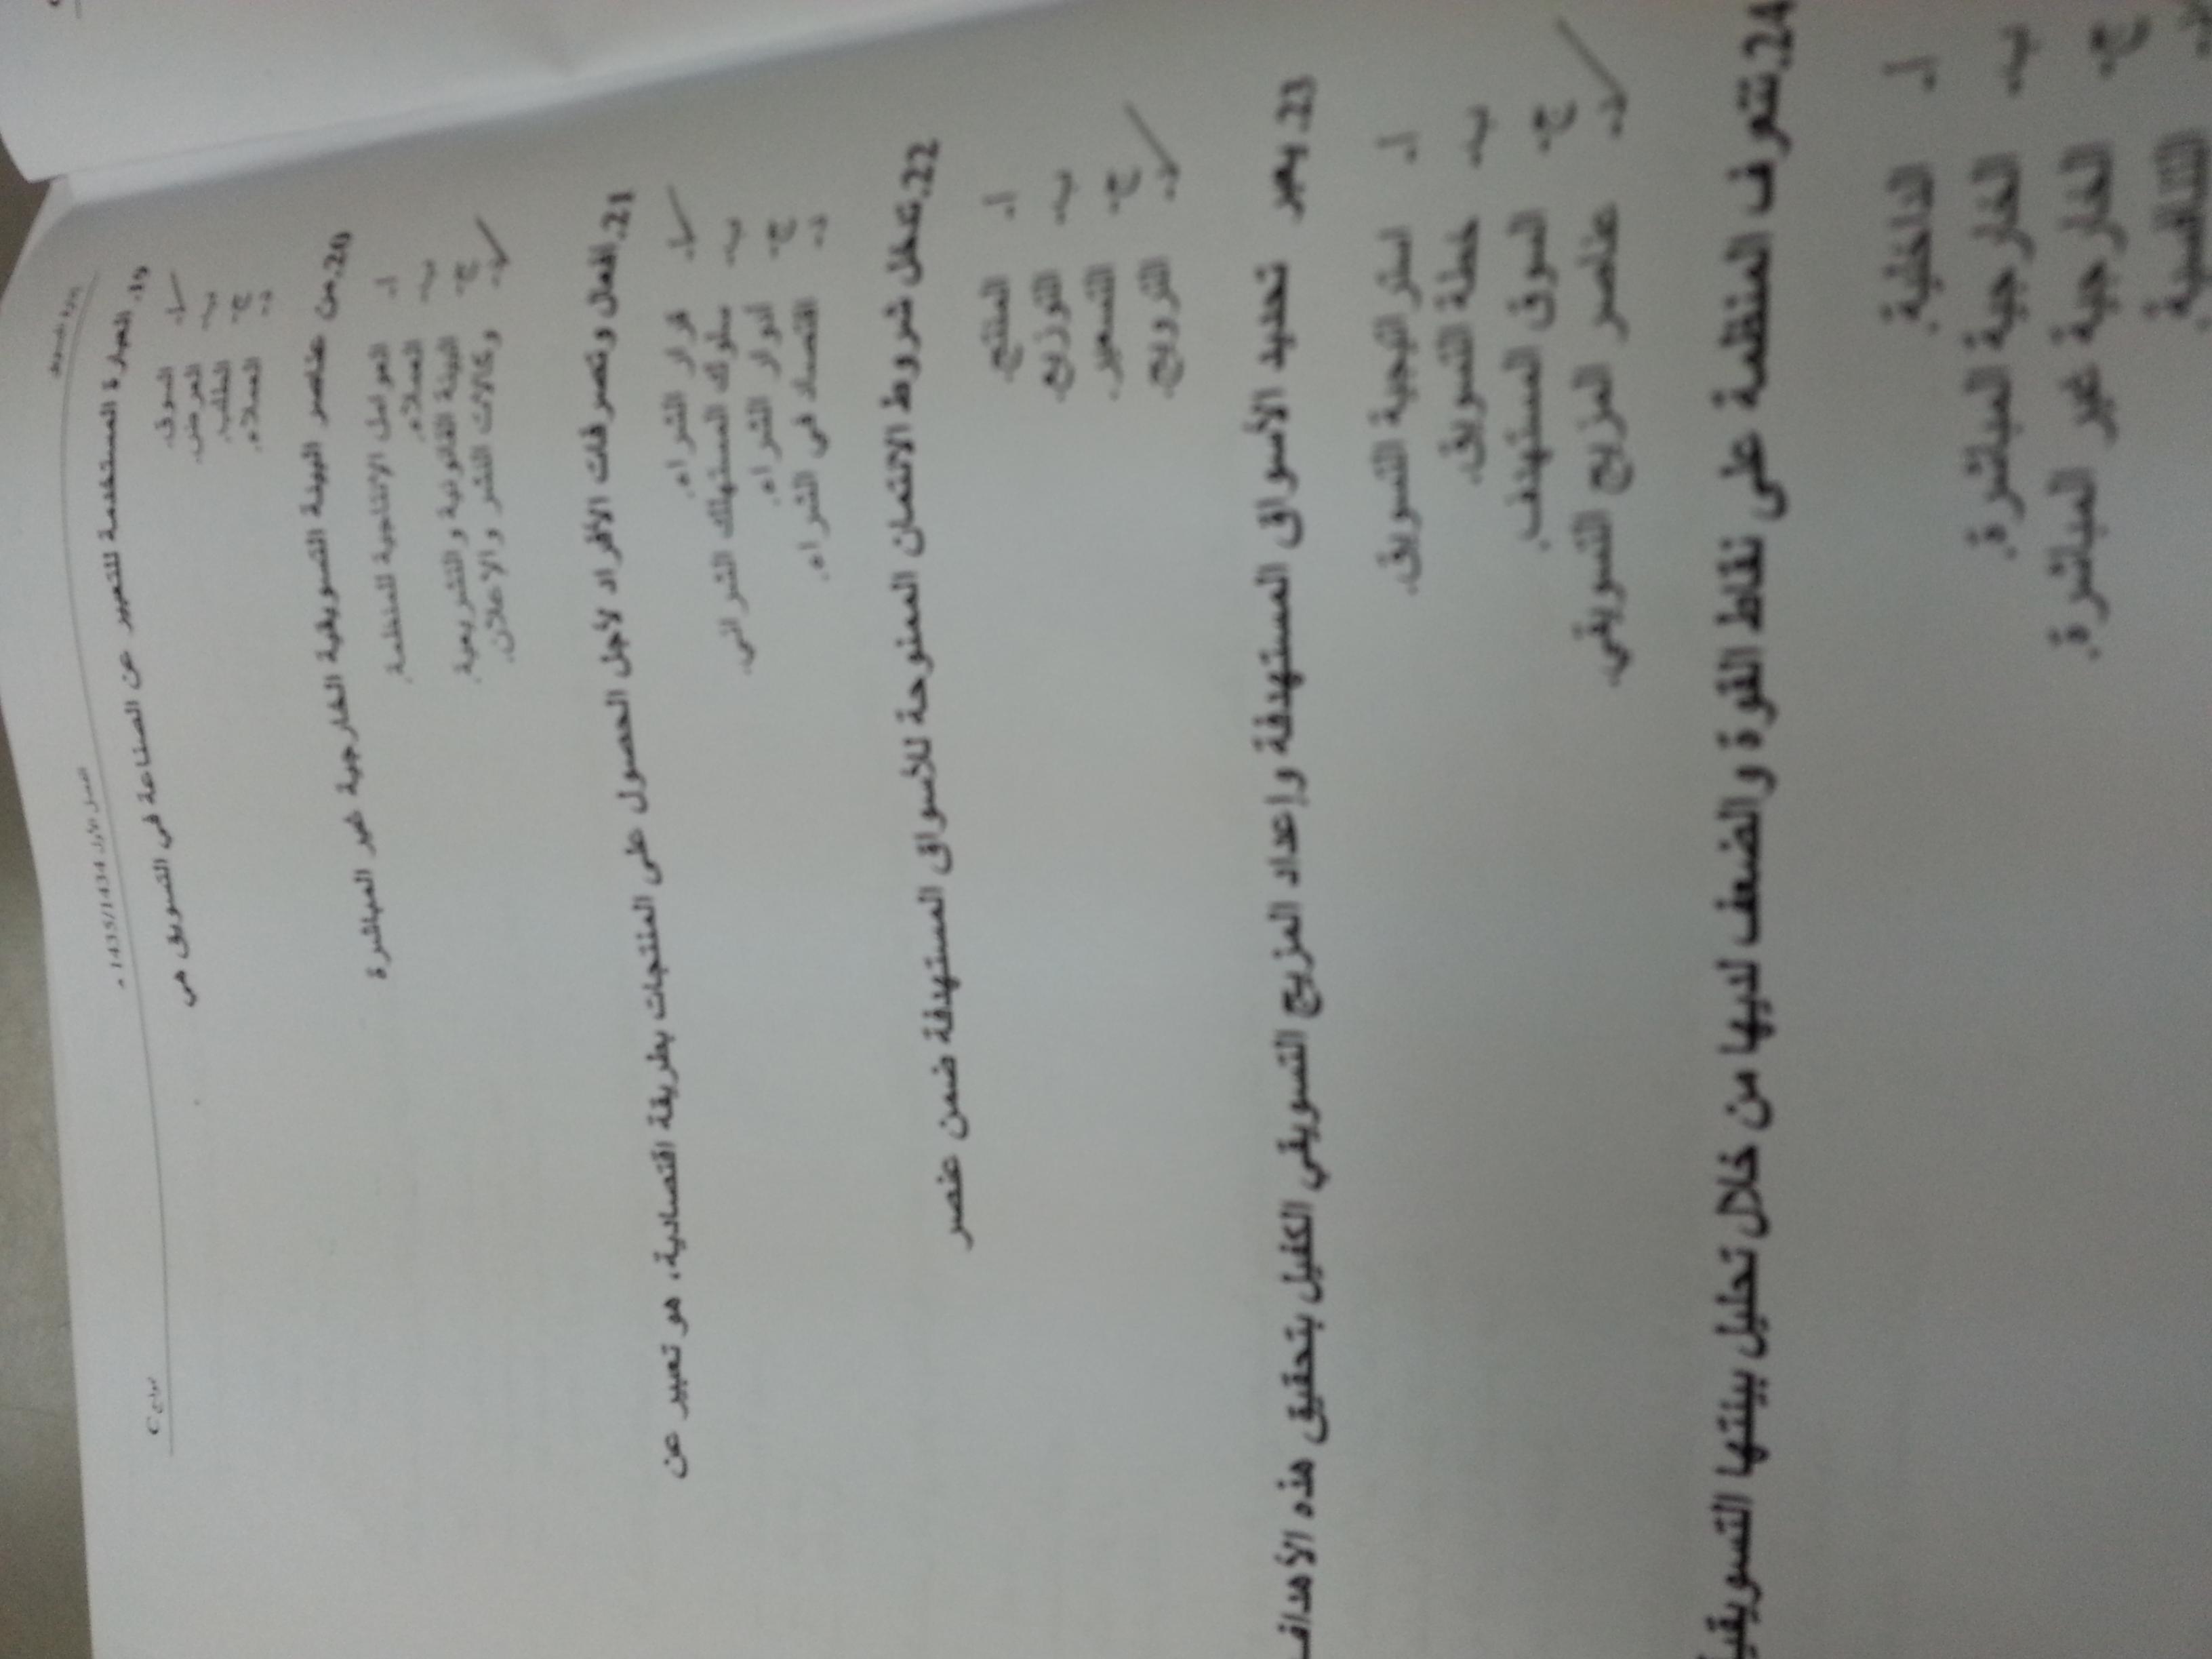 الفصل الأول 1435/1434 هـ
نموذج C
19. العبارة المستخدمة للتعبير عن الصناعة في التسويق هي
أ. السوق.
ب. العرض.
ج. الطلب.
د. العملاء.
20. من عناصر البيئة التسويقية الخارجية غير المباشرة
أ. العوامل الإنتاجية للمنظمة.
ب. العملاء.
ج. البيئة القانونية والتشريعية.
د. وكالات النشر والإعلان.
21. أفعال وتصرفات الأفراد لأجل الحصول على المنتجات بطريقة اقتصادية، هو تعبير عن
أ. قرار الشراء.
ب. سلوك المستهلك الشرائي.
ج. أدوار الشراء.
د. اقتصاد في الشراء.
22. تدخل شروط الائتمان الممنوحة للأسواق المستهدفة ضمن عنصر
أ. المنتج.
ب. التوزيع.
ج. التسعير.
د. الترويج.
23. يعبر تحديد الأسواق المستهدفة وإعداد المزيج التسويقي الكفيل بتحقيق هذه الأهداف
أ. استراتيجية التسويق.
ب. خطة التسويق.
ج. السوق المستهدف.
د. عناصر المزيج التسويقي.
24. تتعرف المنظمة على نقاط القوة والضعف لديها من خلال تحليل بيئتها التسويقية
أ. الداخلية.
ب. الخارجية المباشرة.
ج. الخارجية غير المباشرة.
د. التنافسية